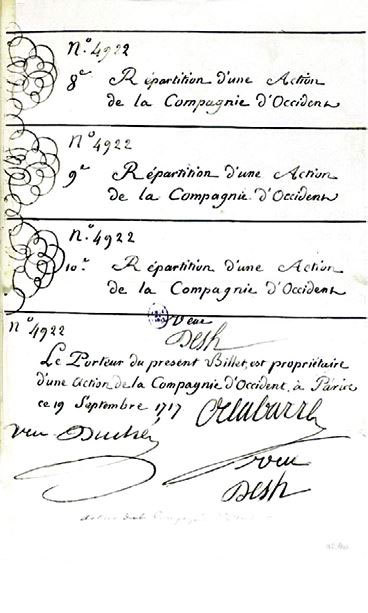 N.º 4922
8.e Répartition d'une Action
de la Compagnie d'Occident
N.º 4922
9.e Répartition d'une Action
de la Compagnie d'Occident
N.º 4922
10.e Répartition d'une Action
de la Compagnie d'Occident
N.º 4922
Veu
Desh
Le Porteur du present Billet, est propriétaire
d'une action de la Compagnie d'Occident, à Paris
ce 19 Septembre 1717
veu
veu
Desh